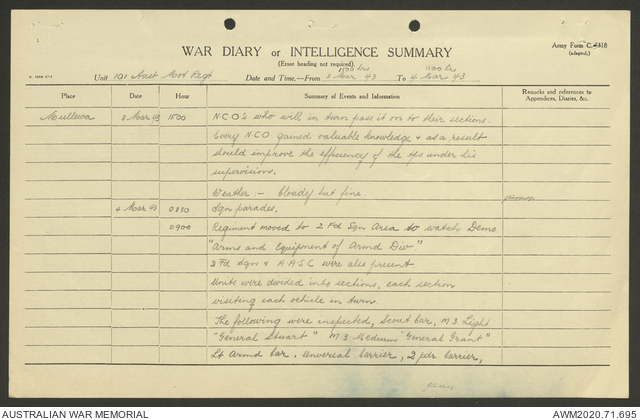 WAR DIARY or INTELLIGENCE SUMMARY
(Erase heading not required).
Army Form C.2118
(adapted.)
Unit 101 Aust Mot Regt Date and Time.—From 1500 hrs 3 Mar 43 To 1100 hrs 4 Mar 43
Place Date Hour Summary of Events and Information Remarks and references to Appendices, Diaries, &c.
Mullewa 3 Mar 43 1500 NCO's who will in turn pass it on to their sections.
Every NCO gained valuable knowledge & as a result
should improve the efficiency of the tps under his
supervision.
Weather — Cloudy but fine.
4 Mar 43 0830 Sqn parades.
0900 Regiment moved to 2 Fd Sqn Area to watch Demo
"Arms and Equipment of Armd Div."
2 Fd Sqn & A.A.S.C were also present
Units were divided into sections, each section
visiting each vehicle in turn.
The following were inspected, Scout Car, M3 Light
"General Stuart" M3 Medium "General Grant"
Lt Armd Car. Universal Carrier, 2 pdr Carrier,
AUSTRALIAN WAR MEMORIAL
AWM2020.71.695